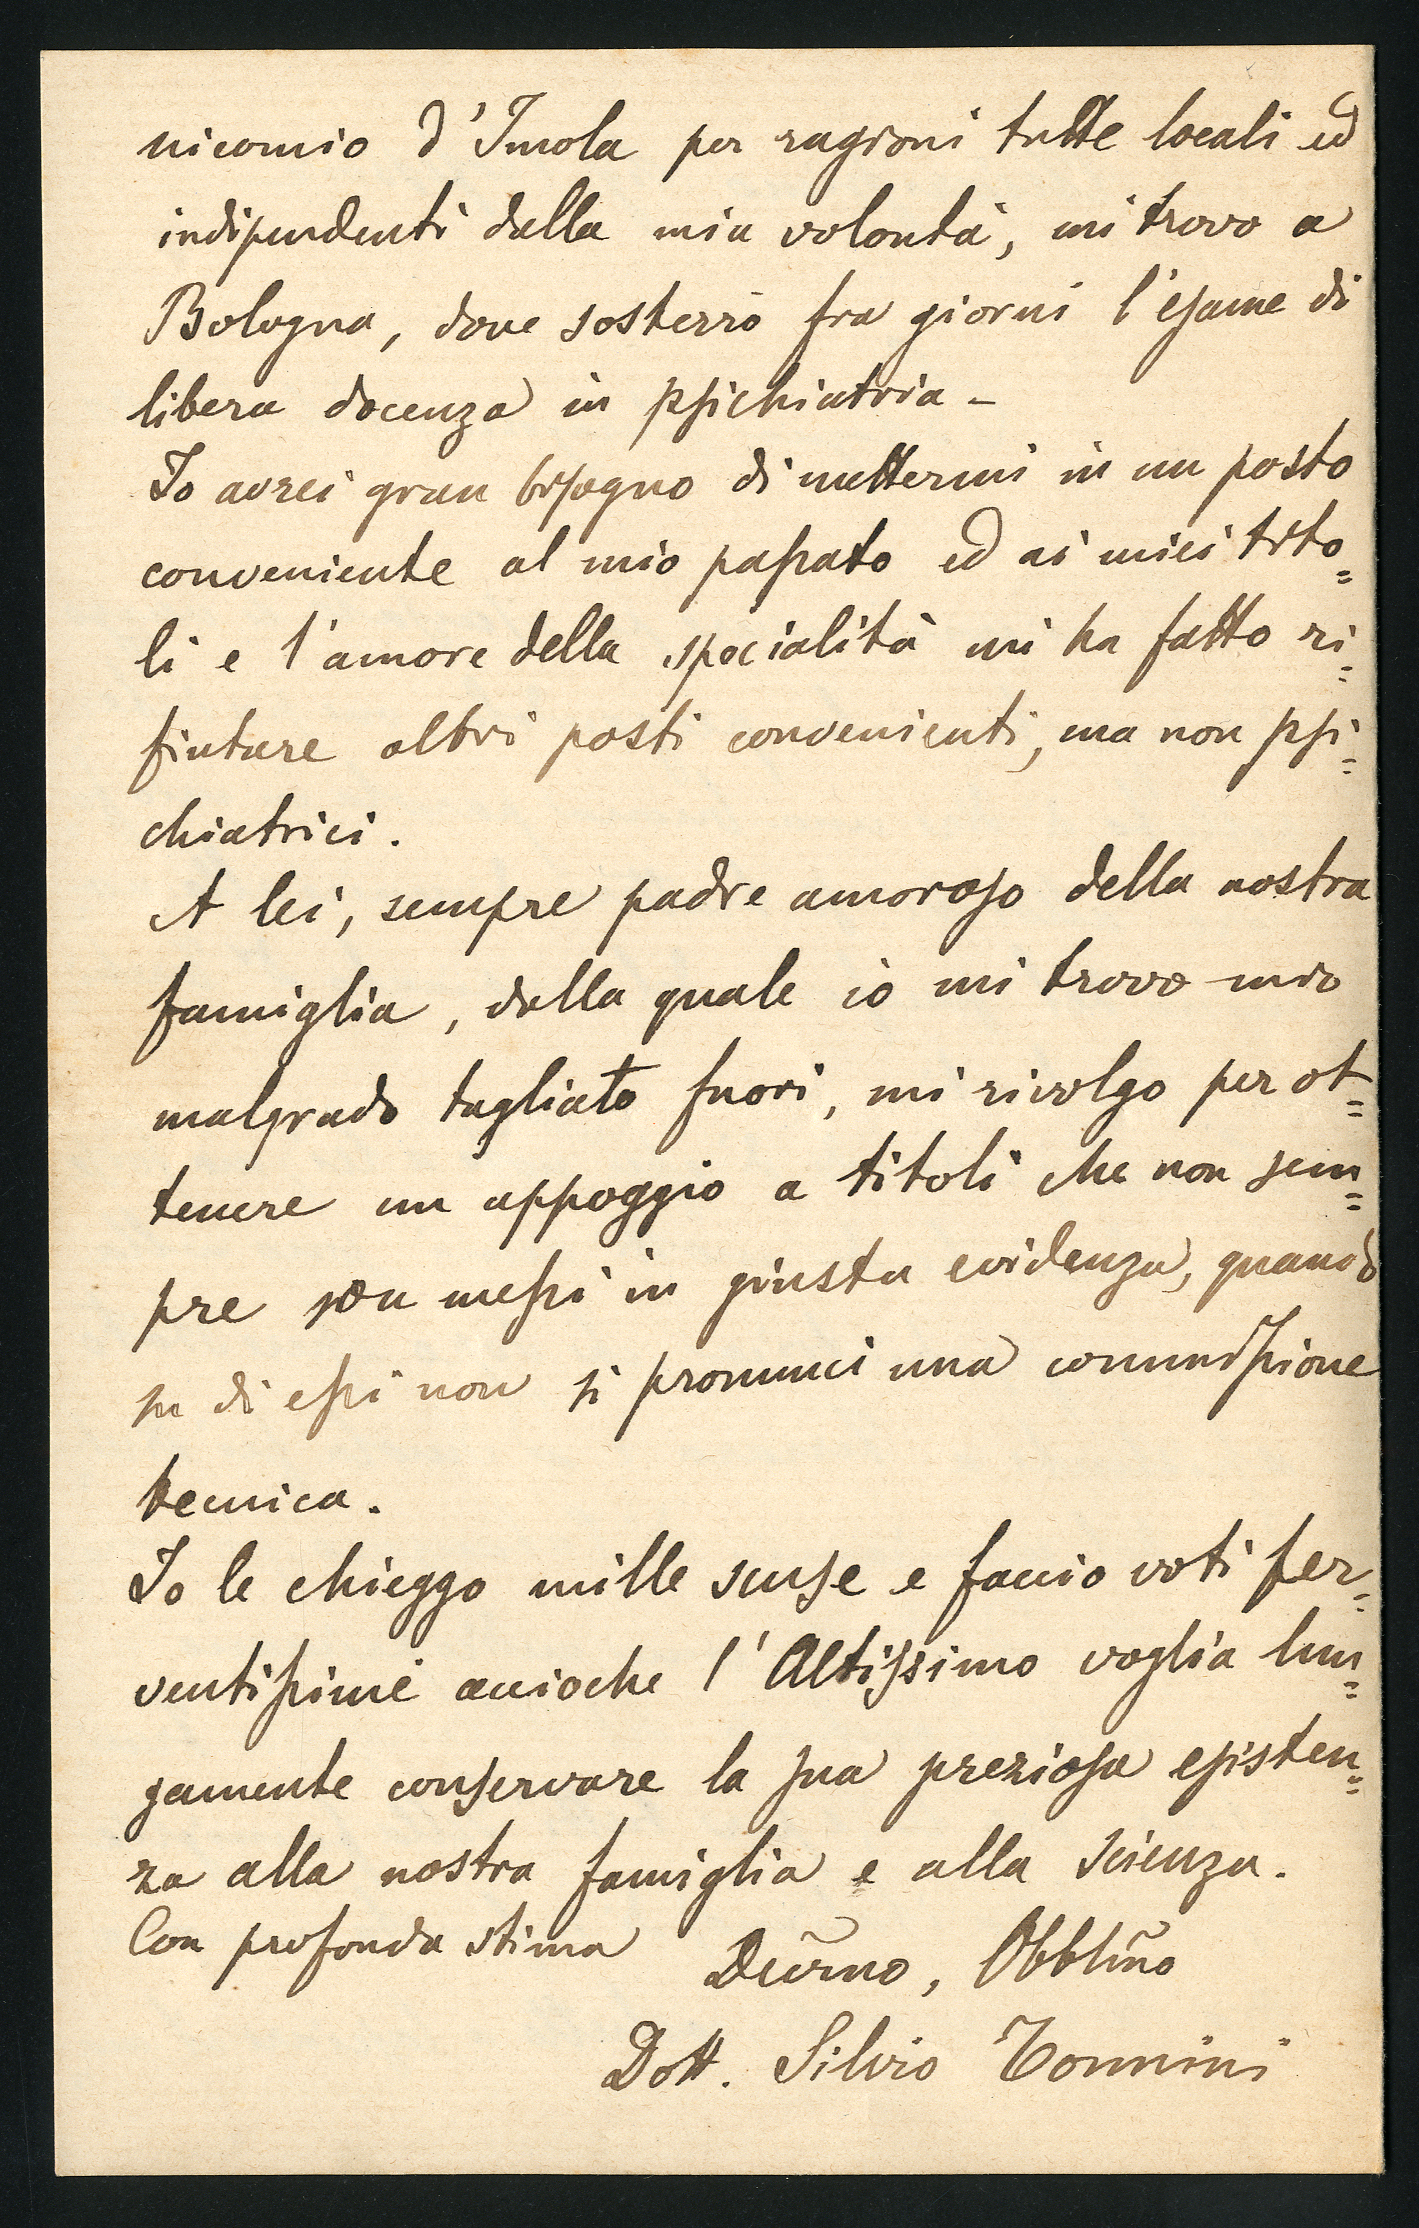 nicomio d'Imola per ragioni tutte locali ed
indipendenti dalla mia volontà, mi trovo a
Bologna, dove sosterrò fra giorni l'esame di
libera docenza in psichiatria -
Io avrei gran bisogno di mettermi in un posto
conveniente al mio passato ed ai miei tito=
li e l'amore della specialità mi ha fatto ri=
fiutare altri posti convenienti, ma non psi=
chiatrici.
A lei, sempre padre amoroso della nostra
famiglia, dalla quale io mi trovo mio
malgrado tagliato fuori, mi rivolgo per ot=
tenere un appoggio a titoli che non sem=
pre son messi in giusta evidenza, quando
su di essi non si pronunci una commissione
tecnica.
Io le chieggo mille scuse e faccio voti fer=
ventissimi accioche l'Altissimo voglia lun=
gamente conservare la sua preziosa esisten=
za alla nostra famiglia e alla scienza.
Con profonda stima Devmo, Obblmo
Dott. Silvio Tonnini